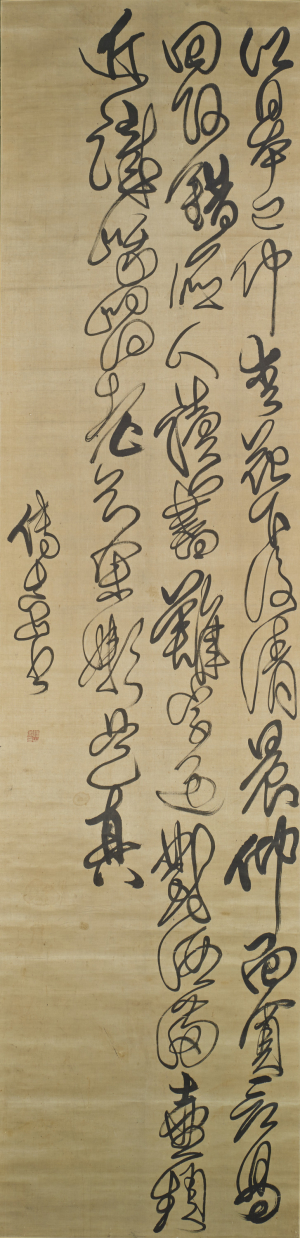 江皋已仲春花下復清晨仰面貪看鳥
回頭錯應人讀書難字過對酒滿壺頻
近識峨嵋老知余懶是真
傅山書